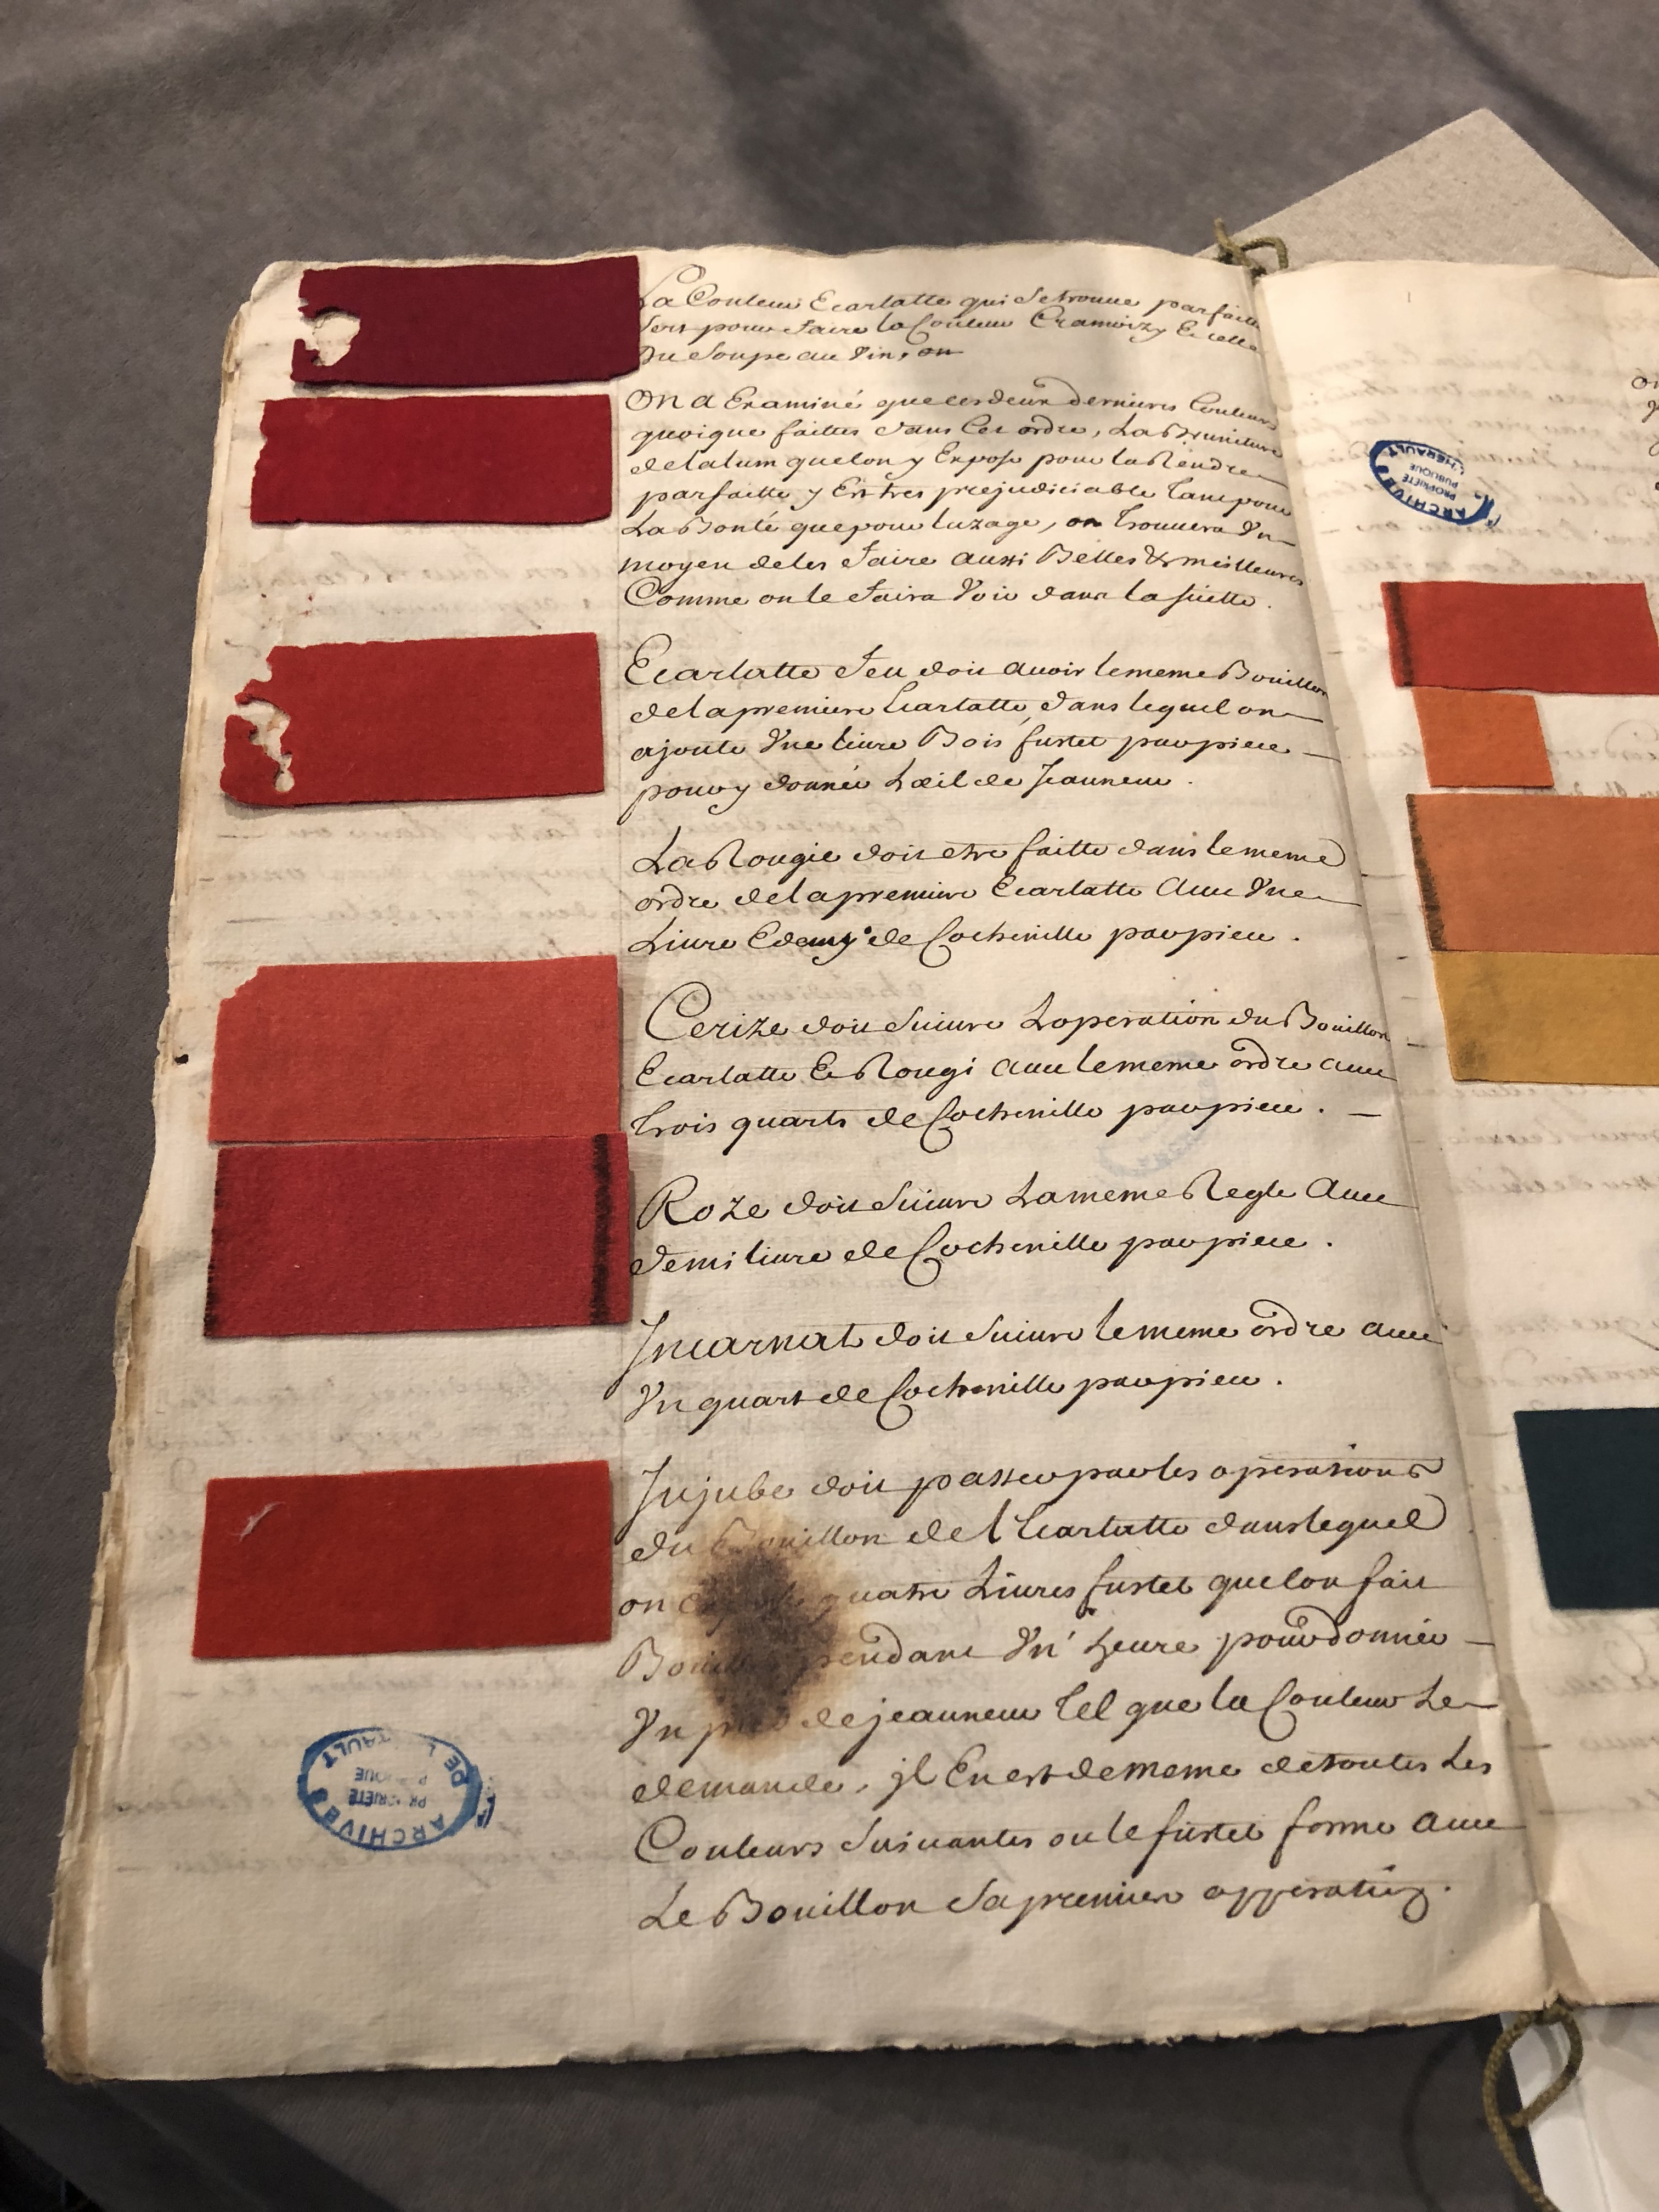 La Couleur Ecarlatte qui Se trouve parfaitte
Sert pour faire la Couleur Cramoizy Et celle
Du Soupe au Vin, on
On a Examiné que ces deux dernieres Couleurs
quoique faittes dans Cet ordre, La Bruniture
de lalum que lon y Expose pour la Rendre
parfaitte y Est tres prejudiciable tant pour
La Bonté que pour luzage, on trouvera Un
moyen de les faire aussi Belles & meilleures
Comme on le faira Voir dans la suitte.
Ecarlatte feu doit avoir le meme Bouillon
de la premiere Ecarlatte, dans lequel on
ajoute Une livre Bois fustet par piece
pour y donner Lœil de Jeauneur.
La Rougie doit etre faitte dans le meme
ordre de la premiere Ecarlatte avec Une
Livre Edemy de Cochenille par piece.
Cerize doit Suivre Loperation du Bouillon
Ecarlatte Et Rougi avec le meme ordre avec
trois quarts de Cochenille par piece.
Roze doit Suivre La meme Regle avec
demi livre de Cochenille par piece.
Incarnat doit Suivre le meme ordre avec
Un quart de Cochenille par piece.
Jujube doit passer par les operations
du Bouillon de l'Ecarlatte dans lequel
on quatre Livres fustet que lon fait
pendant Un' heure pour donner
Un pied de jeauneur tel que la Couleur Le
demande, il En est de meme de toutes Les
Couleurs Suivantes ou le fustet forme avec
Le Bouillon Sa premiere
ARCHIVES DE L'HERAULT
PROPRIÉTÉ
PUBLIQUE
ARCHIVES DE L'HERAULT
PROPRIÉTÉ
PUBLIQUE